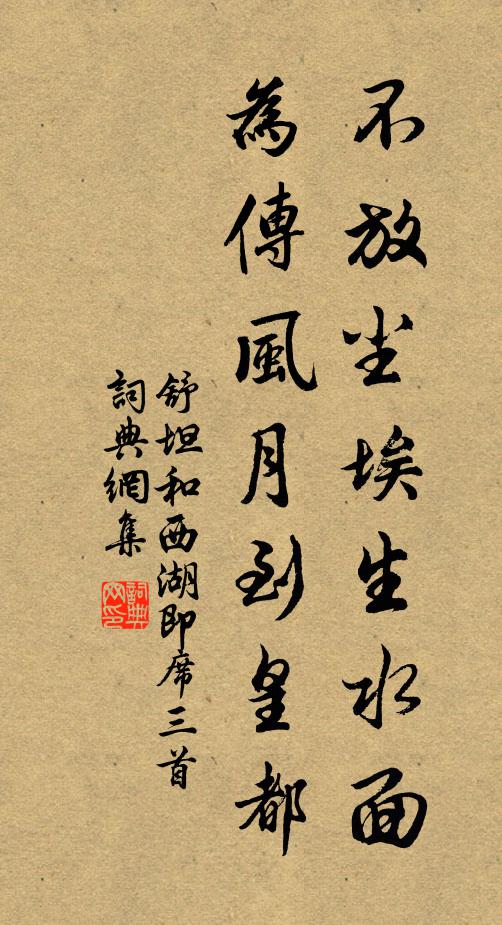 不放尘埃生水面
為傳風月到皇都
舒坦和西湖即席三首
詞典網集
詞典网印